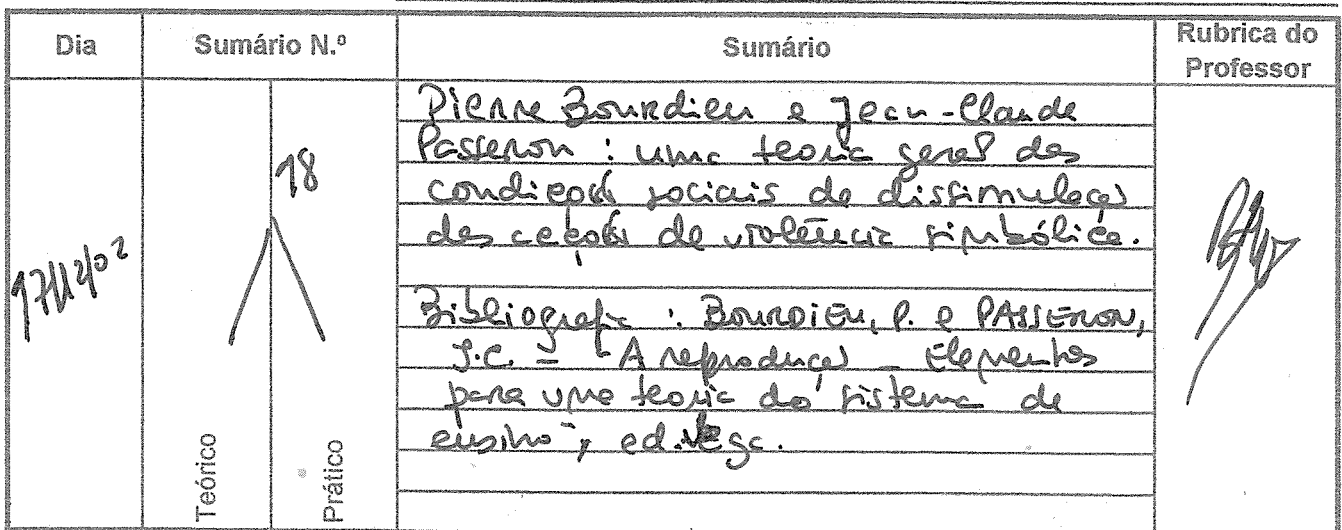 Dia Sumário N.º Sumário Rubrica do Professor
17/12/02
18
Teórico
Prático
Pierre Bourdieu e Jean-Claude
Passeron : uma teoria geral das
condições sociais de dissimulação
das acções de violência simbólica.
Bibliografia : BOURDIEU, P. e PASSERON,
J.C. - "A reprodução - Elementos
para uma teoria do sistema de
ensino", ed. Vega.